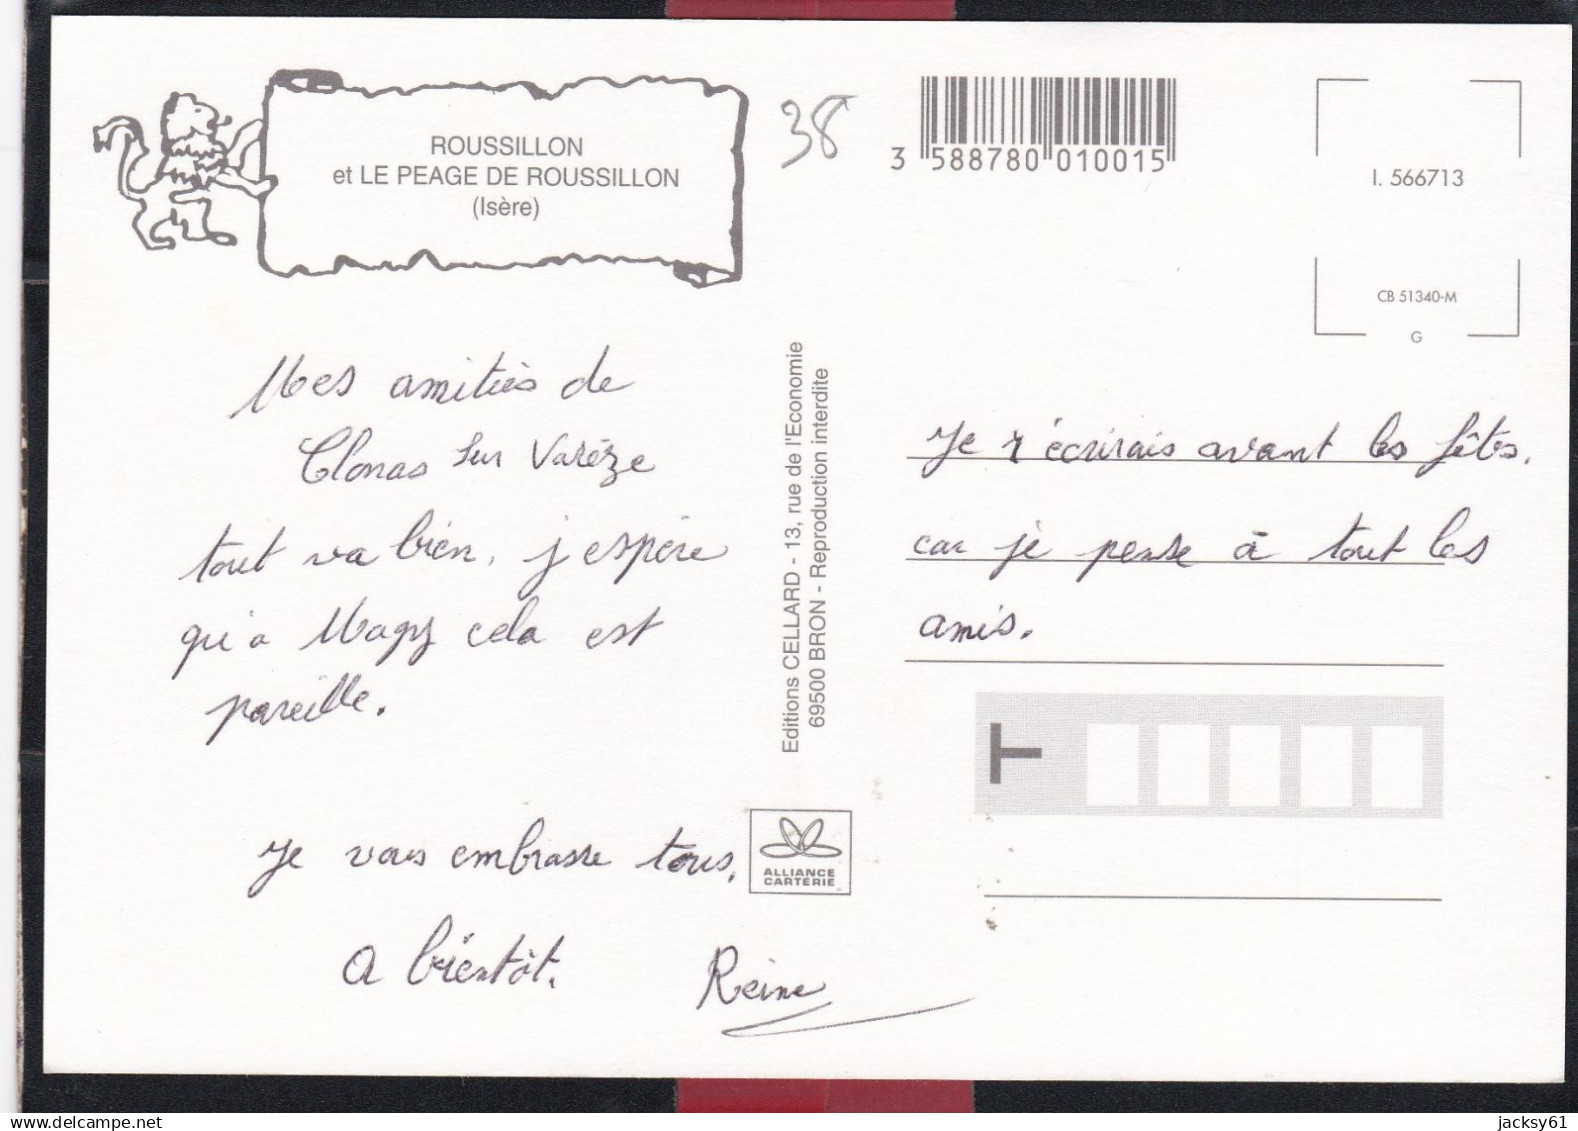 ROUSSILLON
et LE PEAGE DE ROUSSILLON
(Isère)
38
3 588780 010015
I. 566713
CB 51340-M
G
Mes amitiés de
Clonas sur Varéze
tout va bien, j'espère
qu'a Magy cela est
pareille.
Je vous embrasse tous,
A bientôt.
Reine
Editions CELLARD - 13, rue de l'Economie
69500 BRON - Reproduction interdite
ALLIANCE
CARTERIE
Je r'écrirais avant les fêtes.
car je pense à tout les
amis.
T
delcampe.net
jacksy61